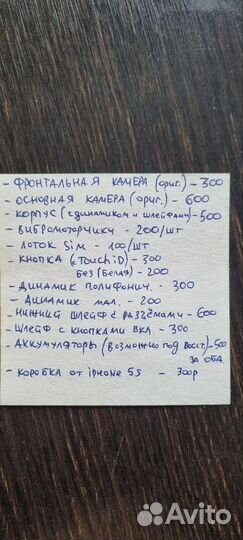 - ФРОНТАЛЬНАЯ КАМЕРА (ориг.) - 300
- ОСНОВНАЯ КАМЕРА (ориг.) - 600
- КОРПУС (с динамиком и шлейфами) - 500
- ВИБРОМОТОРЧИКИ - 200/шт
- ЛОТОК Sim - 100/шт
- КНОПКА (с Touch iD) - 300
БЕЗ (Белая) - 200
- ДИНАМИК ПОЛИФОНИЧ. - 300
- ДИНАМИК МАЛ. - 200
- НИЖНИЙ ШЛЕЙФ С РАЗЪЁМАМИ - 600
- ШЛЕЙФ С КНОПКАМИ ВКЛ - 300
- АККУМУЛЯТОРЫ (ВОЗМОЖНО ПОД ВОССТ.) - 500
ЗА ОБА
- КОРОБКА ОТ iPHONE 5S - 300р
Avito